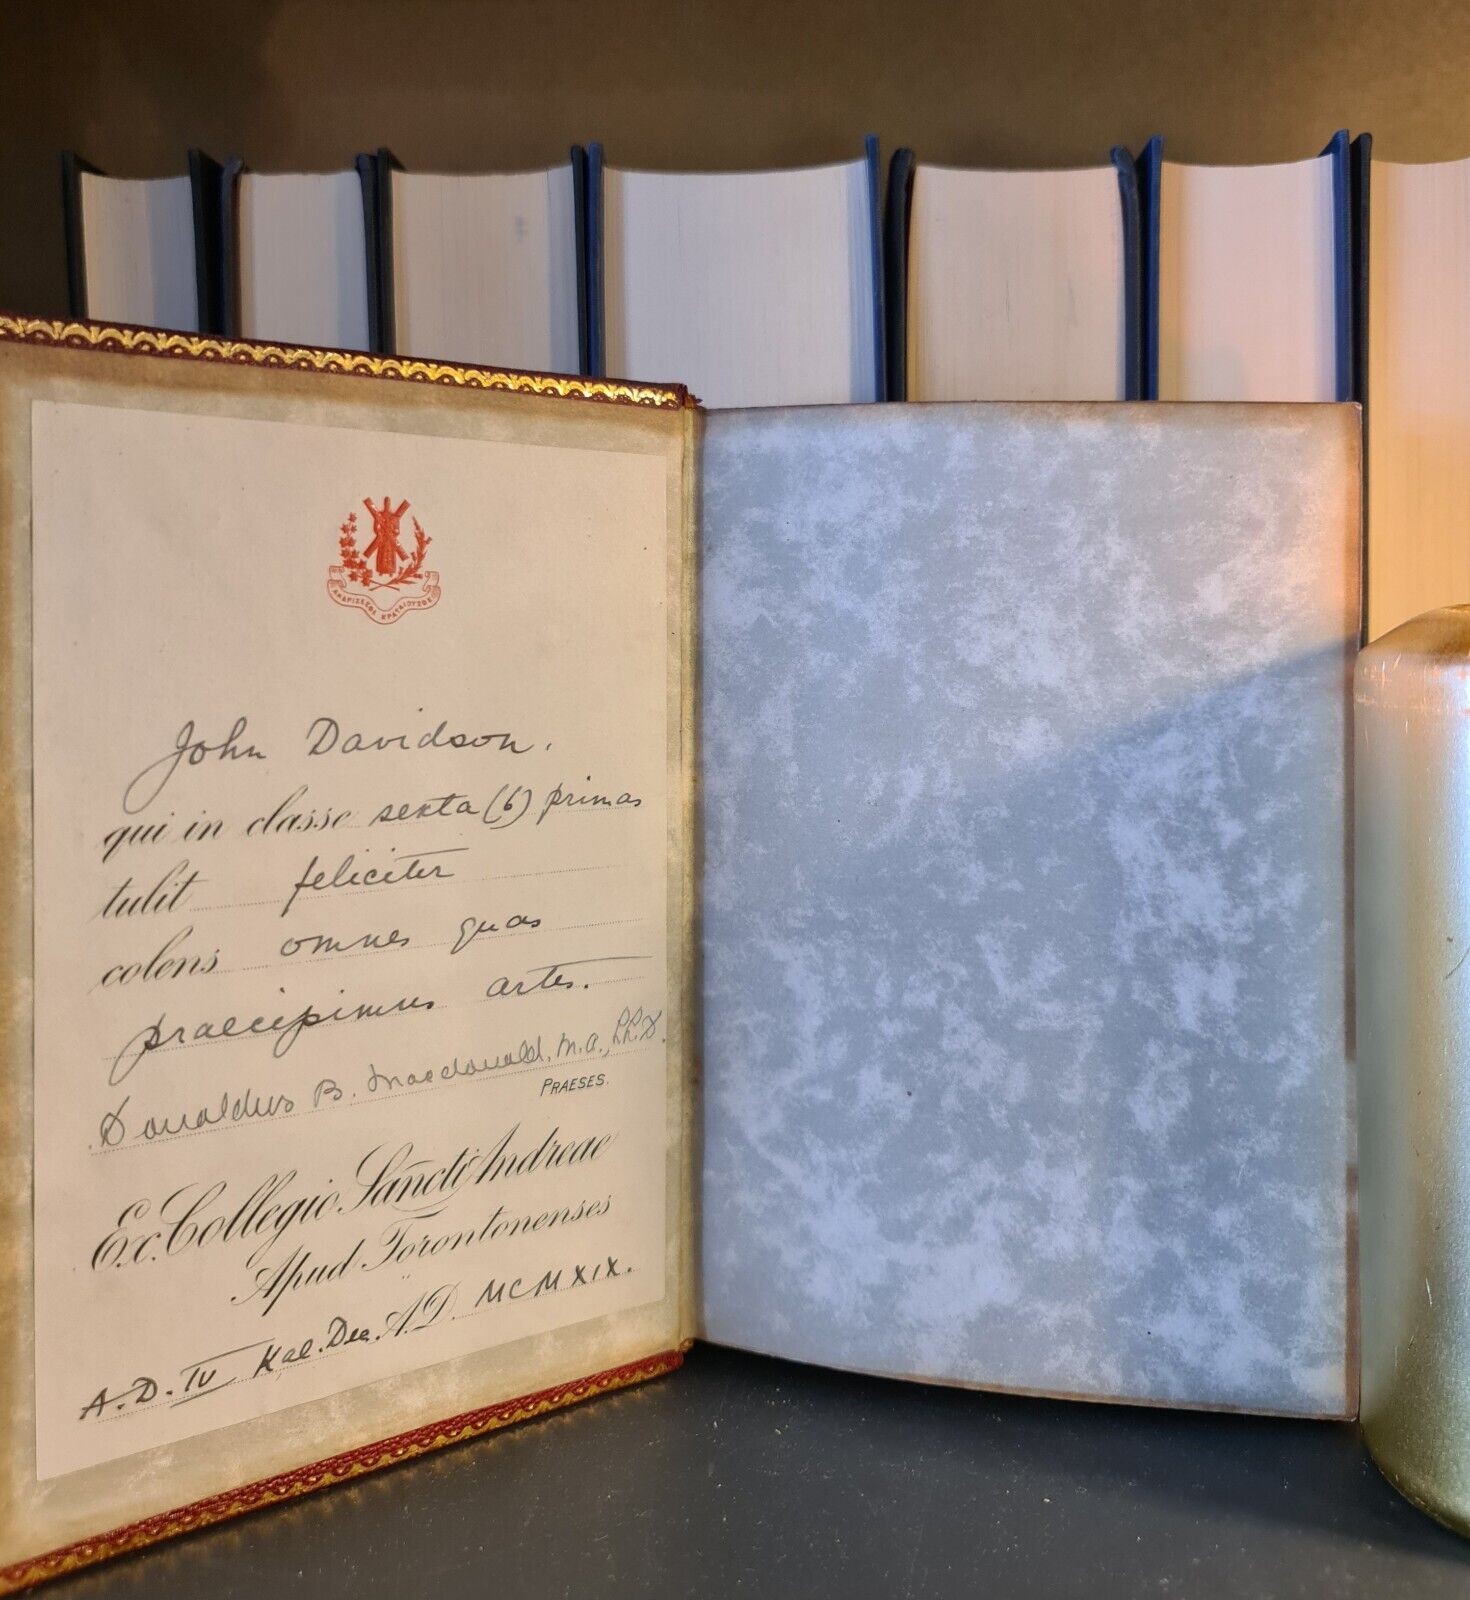 ΑΝΔΡΙΖΕΣΘΕ ΚΡΑΤΑΙΟΥΣΘΕ
John Davidson.
qui in classe sexta (6) primas
tulit feliciter
colens omnes quas
praecipimus artes.
Donaldus B. Macdonald, M.A., LL.D.
PRAESES.
Ex Collegio Sancti Andreae
Apud Torontonenses
A.D. IV Kal. Dec. A.D. MCMXIX.